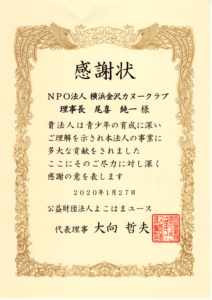 感謝状
NPO法人 横浜金沢カヌークラブ
理事長 尾喜 純一 様
貴法人は青少年の育成に深い
ご理解を示され本法人の事業に
多大な貢献をされました
ここにそのご尽力に対し深く
感謝の意を表します
2020年1月27日
公益財団法人よこはまユース
代表理事 大向 哲夫